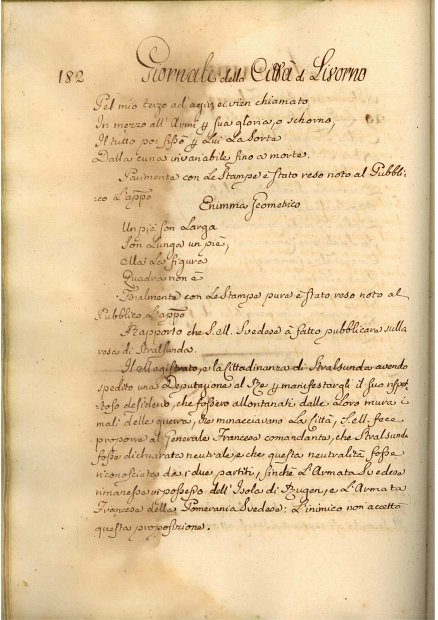 182 Giornale della Città di Livorno
Pel mio terzo ad agir ei vien chiamato
In mezzo all'Armi p sua gloria, o schorno,
Il tutto poi fisso p Lui La Sorte
Dalla cuna invariabile fino a morte.
Parimente con Le Stampe è stato reso noto al Pubbli:
co L'app.o
Enimma Geometrico
Un piè son Larga
Son Lunga un piè,
Ma La figura
Quadra non è
Finalmente con Le Stampe pure è stato reso noto al
Pubblico L'app.o
Rapporto che S. M. Svedese à fatto pubblicare sulla
resa di Stralsunda.
Il Magistrato, e la Cittadinanza di Stralsunda avendo
spedito una Deputazione al Re p manifestargli il suo rispet
toso desiderio, che fossero allontanati dalle Loro mura i
mali della guerra, che minacciavano La Città, S. M. fece
proporre al Generale Francese comandante, che Stralsunda
fosse dichiarata neutrale, e che questa neutralità fosse
riconosciuta da i due partiti, finchè L'Armata Svedese
rimanesse in possesso dell'Isola di Rugen, e L'Armata
Francese della Pomerania Svedese: L'inimico non accettò
questa proposizione.